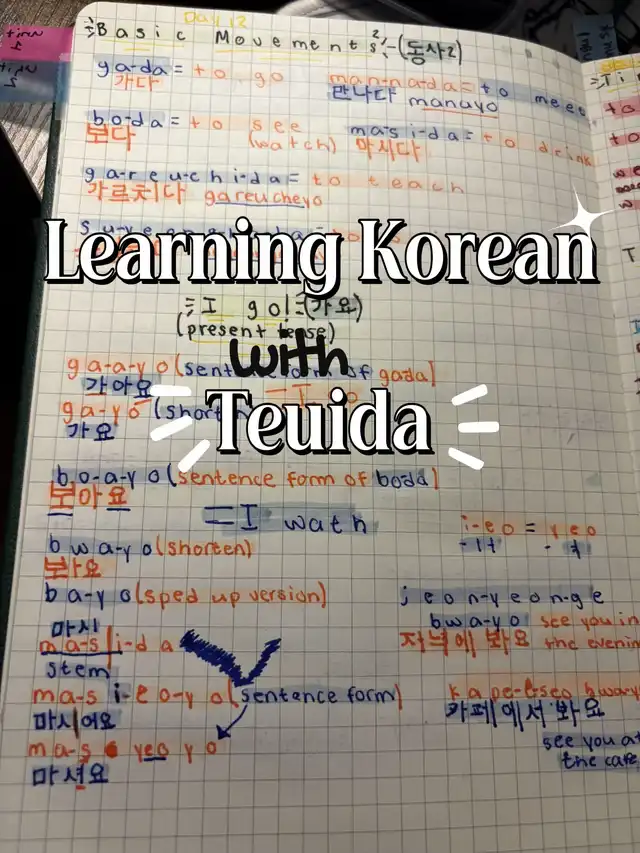 Day 12
Basic Movements 2 (동사2)
ga-da = to go
가다
man-na-da = to meet
만나다 manayo
bo-da = to see
보다 (watch)
ma-si-da = to drink
마시다
ga-reu-chi-da = to teach
가르치다 gareucheyo
Learning Korean
I go! (가요)
(present tense)
with
ga-a-yo (sentence form of gada)
가아요
ga-yo (shorten)
가요
Teuida
bo-a-yo (sentence form of boda)
보아요
= I wath
bwa-yo (shorten)
봐요
ba-yo (sped up version)
i-eo = yeo
ㅣㅓ ㅕ
jeon-yeon-ge
bwa-yo! see you in
저녁에 봐요 the evening
마시
ma-s|i-da
stem
ma-si-eo-yo (sentence form)
마시어요
ma-s yeo yo
마셔요
카페에서 봐요
see you at
the cafe